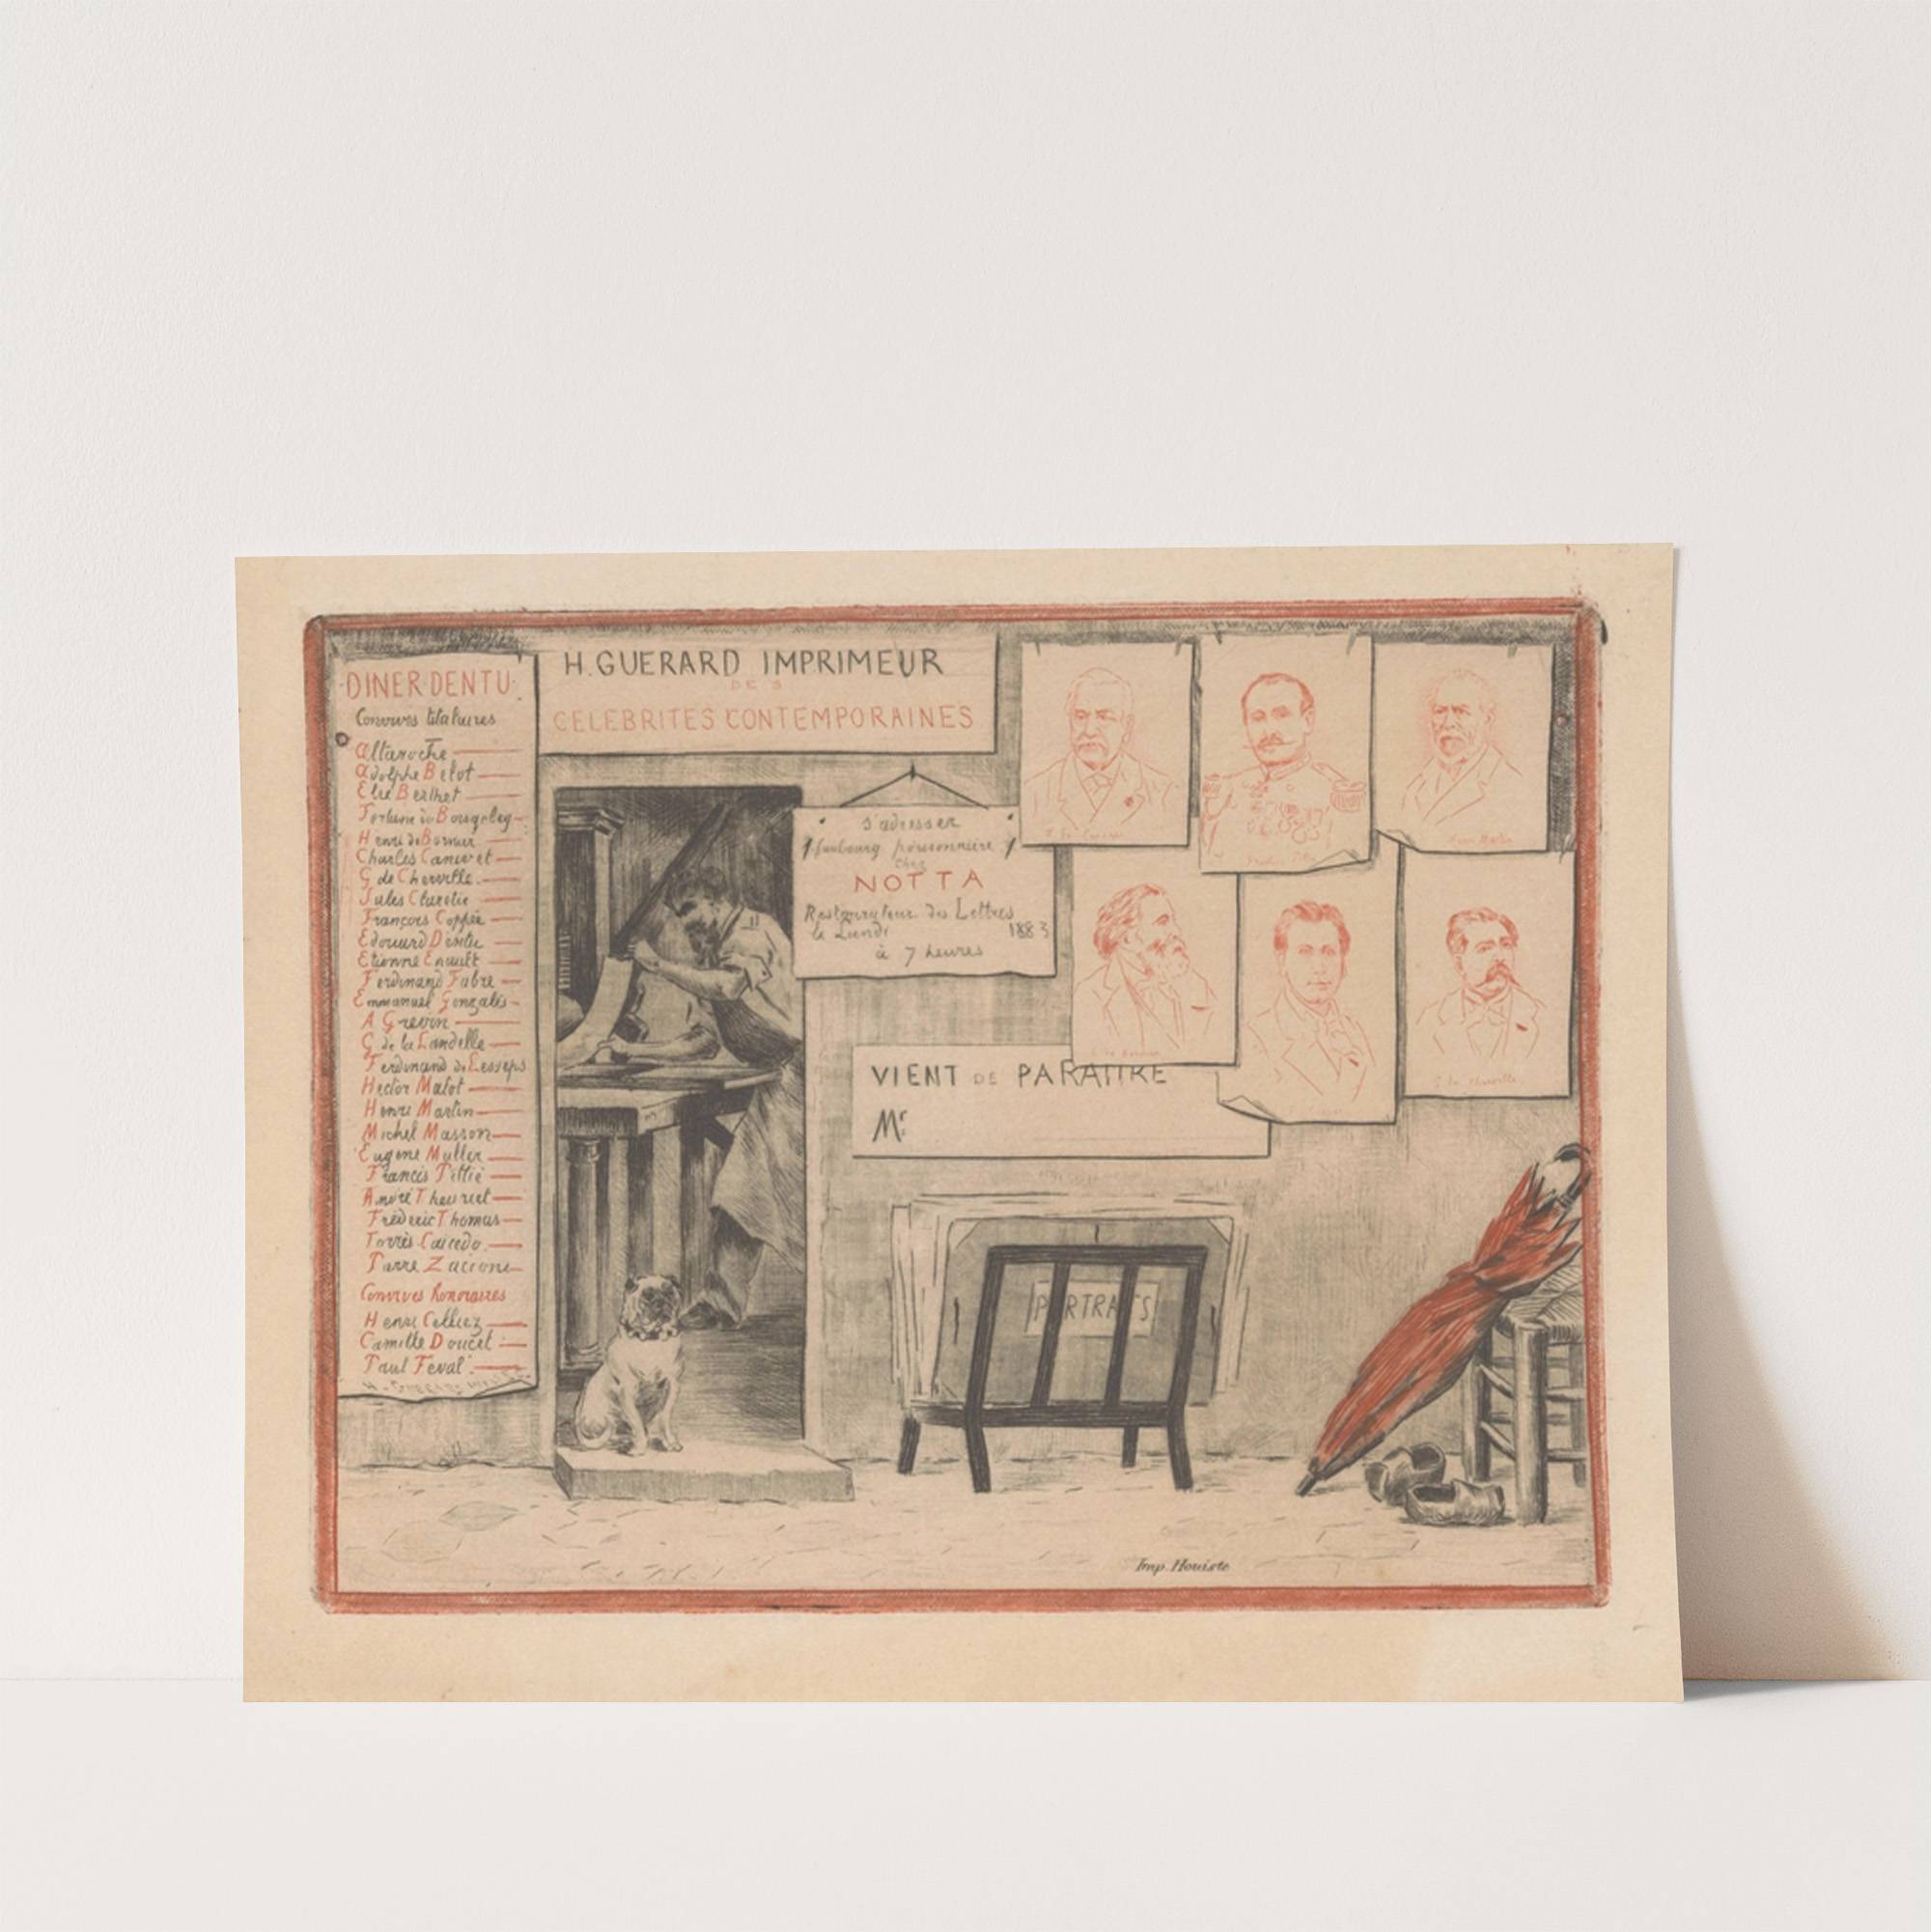 DINER DENTU
Convives titulaires
Altaroche
Adolphe Belot
Elie Berthet
Fortuné du Boisgobey
Henri de Bornier
Charles Canivet
G de Cherville
Jules Claretie
François Coppée
Edouard Dentu
Etienne Enault
Ferdinand Fabre
Emmanuel Gonzalès
A Grevin
G de la Landelle
Ferdinand de Lesseps
Hector Malot
Henri Martin
Michel Masson
Eugène Muller
Francis Pittié
André Theuriet
Frédéric Thomas
Torrès Caicedo
Pierre Zaccone
Convives honoraires
Henri Celliez
Camille Doucet
Paul Feval
H. GUERARD IMPRIMEUR
DES
CELEBRITES CONTEMPORAINES
s'adresser
1 faubourg poissonnière 1
chez
NOTTA
Restaurateur des Lettres
le Lundi 1883
à 7 heures
Henri Martin
H. de Bornier
G de Cherville
VIENT DE PARAITRE
Mr
PORTRAITS
Imp. Houiste